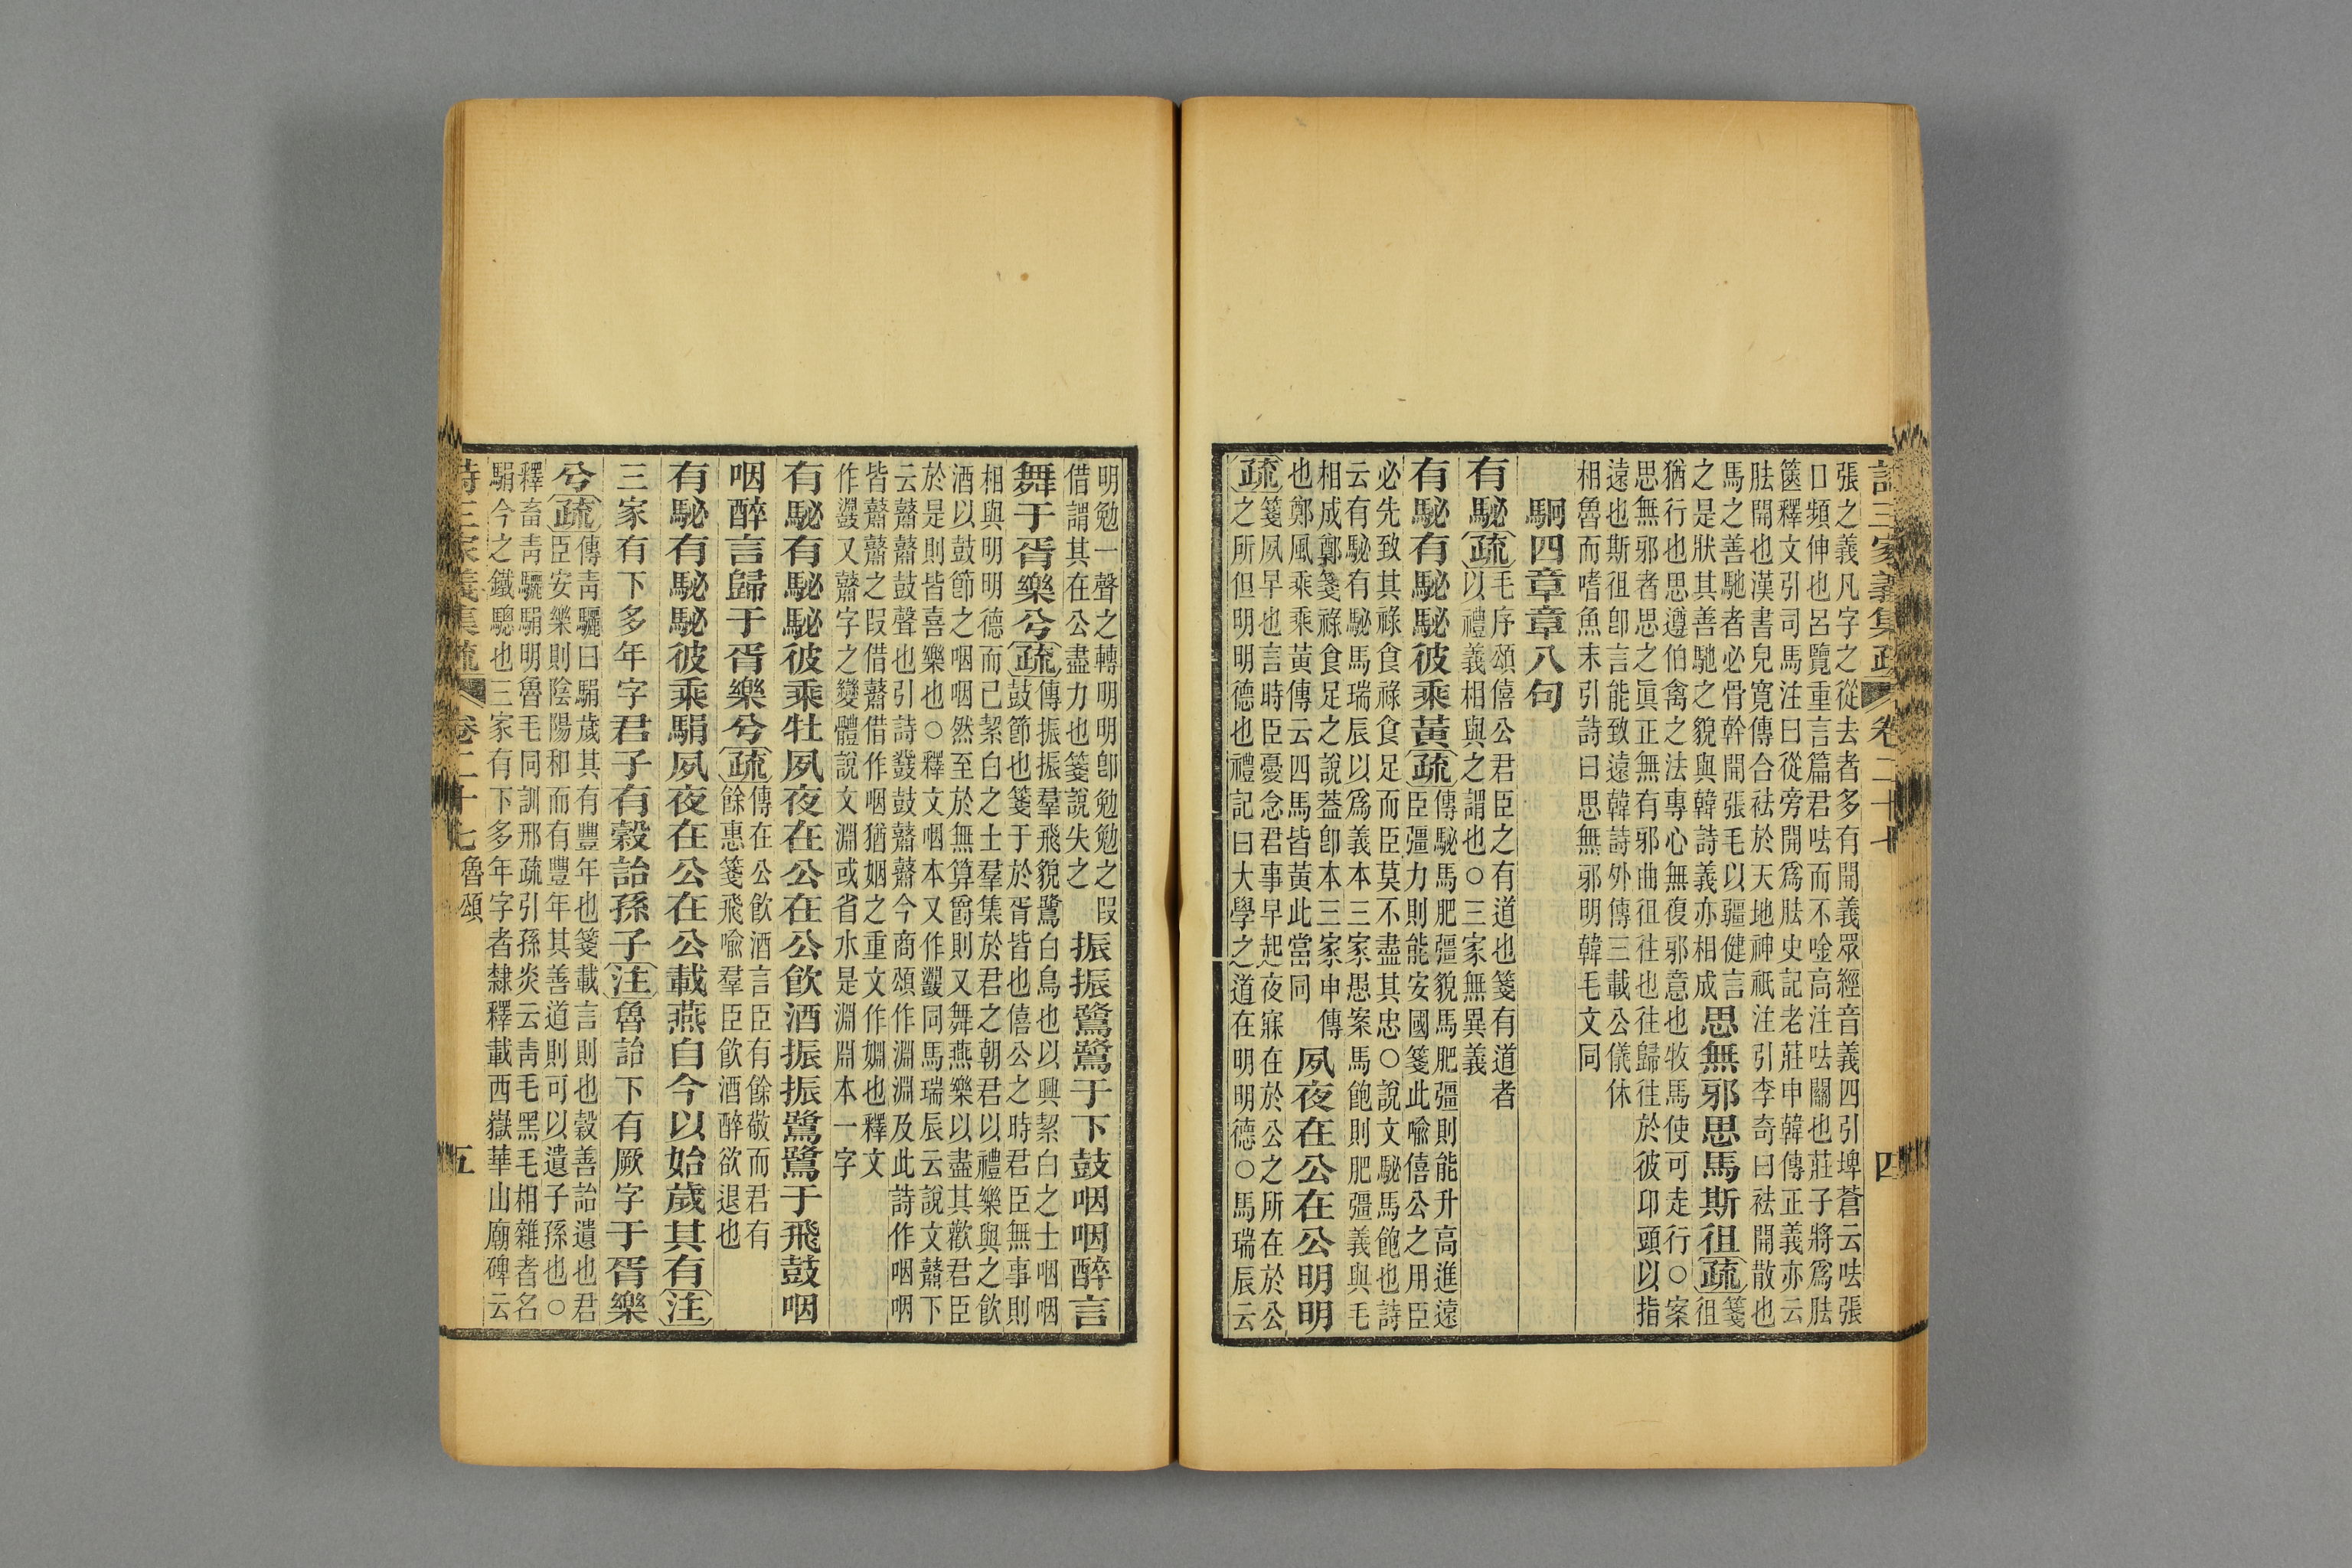 詩三家義集疏 卷二十七 四
張之義凡字之從去者多有開義眾經音義四引埤蒼云呿張
口頻伸也呂覽重言篇君呿而不唫高注呿闢也莊子將爲胠
篋釋文引司馬注曰從旁開爲胠史記老莊申韓傳正義亦云
胠開也漢書兒寬傳合祛於天地神祇注引李奇曰祛開散也
馬之善馳者必骨幹開張毛以彊健言
之是狀其善馳之貌與韓詩義亦相成
思無邪思馬斯徂疏
箋
徂
猶行也思遵伯禽之法專心無復邪意也牧馬使可走行○案
思無邪者思之眞正無有邪曲徂往也往歸往於彼卬頭以指
遠也斯徂卽言能致遠韓詩外傳三載公儀休
相魯而嗜魚末引詩曰思無邪明韓毛文同
駉四章章八句
有駜疏
毛序頌僖公君臣之有道也箋有道者
以禮義相與之謂也○三家無異義
有駜有駜駜彼乘黃疏
傳駜馬肥彊貌馬肥彊則能升高進遠
臣彊力則能安國箋此喻僖公之用臣
必先致其祿食祿食足而臣莫不盡其忠○說文駜馬飽也詩
云有駜有駜馬瑞辰以爲義本三家愚案馬飽則肥彊義與毛
相成鄭箋祿食足之說蓋卽本三家申傳
也鄭風乘乘黃傳云四馬皆黃此當同
夙夜在公在公明明
疏
箋夙早也言時臣憂念君事早起夜寐在於公之所在於公
之所但明明德也禮記曰大學之道在明明德○馬瑞辰云
明勉一聲之轉明明卽勉勉之叚
借謂其在公盡力也箋說失之
振振鷺鷺于下鼓咽咽醉言
舞于胥樂兮疏
傳振振羣飛貌鷺白鳥也以興絜白之士咽咽
鼓節也箋于於胥皆也僖公之時君臣無事則
相與明明德而已絜白之士羣集於君之朝君以禮樂與之飲
酒以鼓節之咽咽然至於無算爵則又舞燕樂以盡其歡君臣
於是則皆喜樂也○釋文咽本又作鼝同馬瑞辰云說文鼘下
云鼘鼘鼓聲也引詩鼗鼓鼘鼘今商頌作淵淵及此詩作咽咽
皆鼘鼘之叚借鼘借作咽猶姻之重文作婣也釋文
作鼝又鼘字之變體說文淵或省水是淵𣶒本一字
有駜有駜駜彼乘牡夙夜在公在公飲酒振振鷺鷺于飛鼓咽
咽醉言歸于胥樂兮疏
傳在公飲酒言臣有餘敬而君有
餘惠箋飛喻羣臣飲酒醉欲退也
有駜有駜駜彼乘駽夙夜在公在公載燕自今以始歲其有注
三家有下多年字君子有穀詒孫子注魯詒下有厥字于胥樂
兮疏
傳靑驪曰駽歲其有豐年也箋載言則也穀善詒遺也君
臣安樂則陰陽和而有豐年其善道則可以遺子孫也○
釋畜靑驪駽明魯毛同訓邢疏引孫炎云靑毛黑毛相雜者名
駽今之鐵驄也三家有下多年字者隸釋載西嶽華山廟碑云
詩三家義集疏 卷二十七 魯頌 五